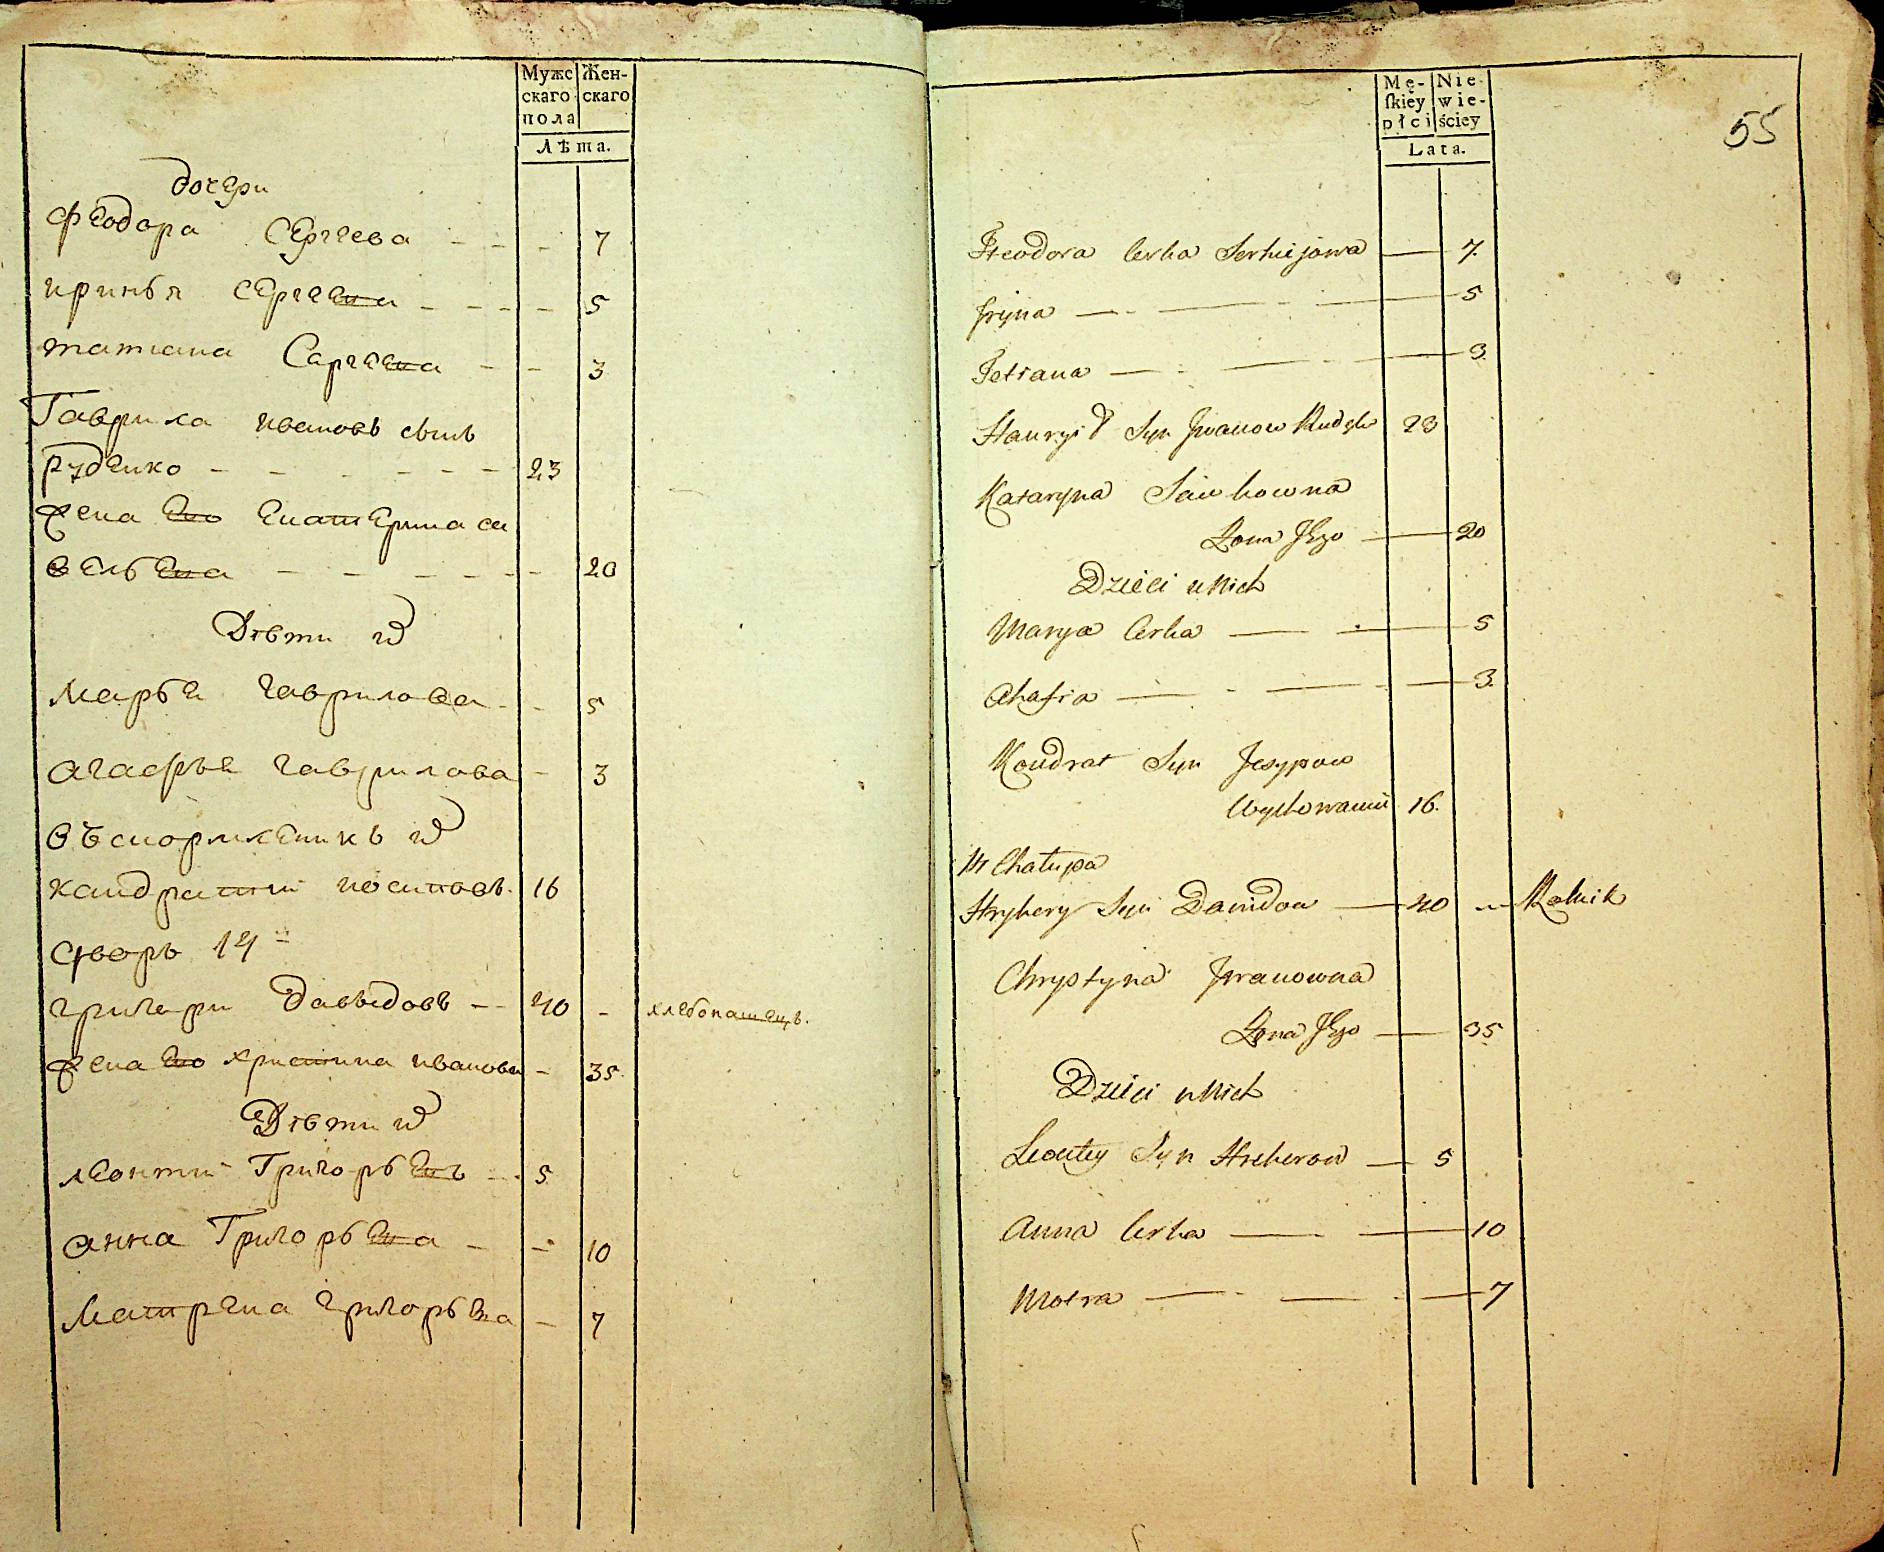 Мужс
скаго
пола
Жен-
скаго
Лѣта.
дочери
Феодора Сергеева - - - 7
иринья Сергеева - - - - 5
татиана Сергеева - - 3
Гаврила ивановъ сынъ
руденко - - - - - - 23
жена Ево Екатерина са
вельева - - - - - - 20
Дѣти их
Марья гаврилова - - 5
агафья гаврилова - 3
въскормленикъ их
кандратий иосиповъ. 16
дворъ 14й
григори давыдовъ - - 40 - хлебопашецъ.
жена Ево христина иванова - 35
Дѣти их
леонтий Григорьевъ - - 5
анна Григорьева - - 10
Матрена григорьева - 7
Mę-
ſkiey
płci
Nie-
wie-
ściey
Lata.
55
Fteodora Corka Serhiejowa — 7.
Iryna — - — - — 5
Tetiana — - — - — 3
Hauryił Syn Iwanow Rudyk 23
Kataryna Sawkowna
Żona Jego — 20
Dzieci u Nich
Marya Corka — - — 5
Ahafia — - — - — 3.
Kondrat Syn Jesypow
Wychowaniec 16.
14 Chałupa
Hryhory Syn Dawidow — 40 - Rolnik
Chrystyna Iwanowna
Żona Jego — 35
Dzieci u Nich
Leontey Syn Hrehorow — 5
Anna Corka — — 10
Motra — - — - — 7